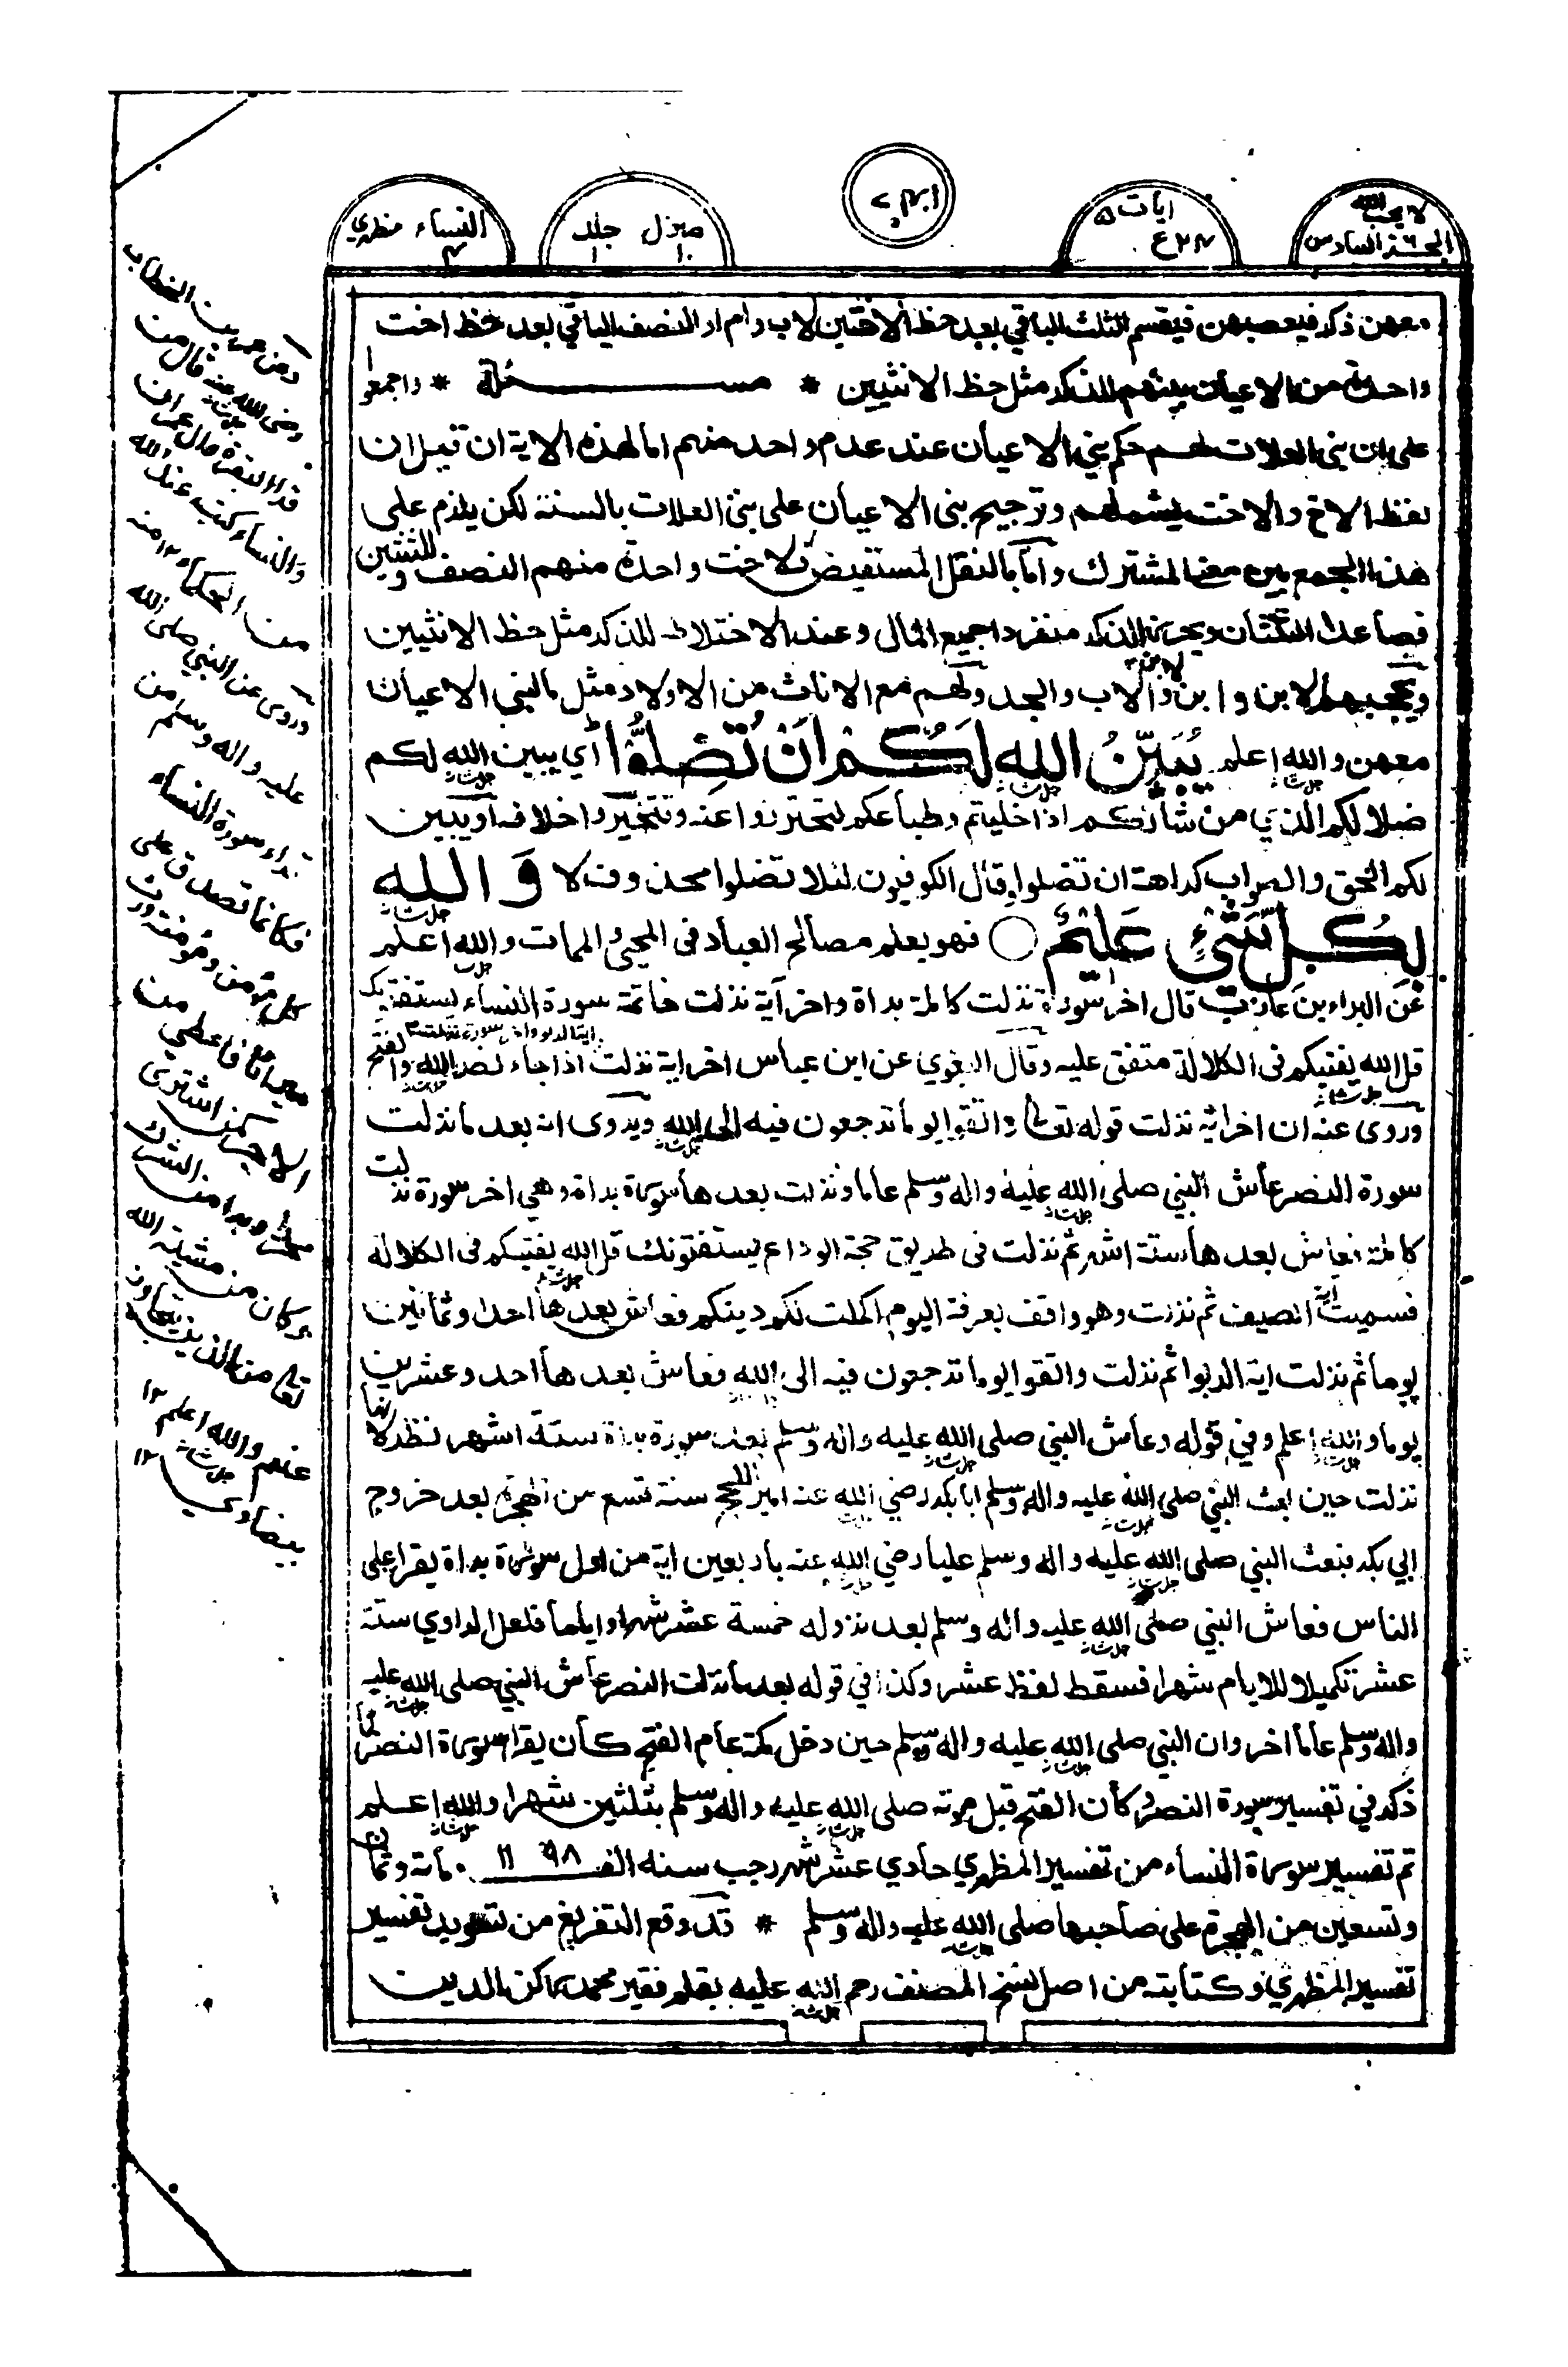 لا يحب الله
الجزء السادس
ايات ٥
٢٤ ع
منزل جلد
١ ١
النساء مظهري
٤
معهن ذكر فيعصبهن فيقسم الثلث الباقي بعد حظ الاختين لاب وام او النصف الباقي بعد حظ اخت
واحدة من الاعيان بينهم للذكر مثل حظ الانثيين * مسئلة * واجمعوا
على ان بنى العلات لهم حكم بني الاعيان عند عدم واحد منهم اما لهذه الاية ان قيل ان
لفظ الاخ والاخت يشملهم وترجيح بنى الاعيان على بنى العلات بالسنة لكن يلزم على
هذا الجمع بين معنى المشترك واما بالنقل المستفيض للاخت واحدة منهم النصف وللثنتين
فصاعدا الثلثان ويحرز الذكر منفردا جميع المال وعند الاختلاط للذكر مثل حظ الانثيين
ويحجبهم الابن وابن الابن والاب والجد ولهم مع الاناث من الاولاد مثل ما لبني الاعيان
معهن والله اعلم يُبَيِّنُ اللهُ لَكُمْ اَنْ تَضِلُّوْا اي يبين الله لكم
ضلالكم الذي من شانكم اذا خليتم وطباعكم لتحترزوا عنه وتتخيروا خلافه او يبين
لكم الحق والصواب كراهة ان تضلوا وقال الكوفيون لئلا تضلوا محذوف لا وَاللهُ
بِكُلِّ شَيْءٍ عَلِيْمٌ ○ فهو يعلم مصالح العباد فى المحيى والممات والله اعلم
عن البراء بن عازب قال اخر سورة نزلت كاملة براة واخر آية نزلت خاتمة سورة النساء يستفتونك
قل الله يفتيكم فى الكلالة متفق عليه وقال البغوي عن ابن عباس اخر اية نزلت اية الربوا واخر سورة نزلت اذا جاء نصر الله والفتح
وروى عنه ان اخر اية نزلت قوله تعالى واتقوا يوما ترجعون فيه الى الله ويروى انه بعد ما نزلت
سورة النصر عاش النبي صلى الله عليه واله وسلم عاما ونزلت بعدها سورة براة وهي اخر سورة نزلت
كاملة فعاش بعدها ستة اشهر ثم نزلت فى طريق حجة الوداع يستفتونك قل الله يفتيكم فى الكلالة
فسميت اية الصيف ثم نزلت وهو واقف بعرفة اليوم اكملت لكم دينكم فعاش بعدها احدا وثمانين
يوما ثم نزلت اية الربوا ثم نزلت واتقوا يوما ترجعون فيه الى الله فعاش بعدها احد وعشرين
يوما والله اعلم وفي قوله وعاش النبي صلى الله عليه واله وسلم بعد سورة براة ستة اشهر نظر لانها
نزلت حين بعث النبي صلى الله عليه واله وسلم ابا بكر رضي الله عنه امير الحج سنة تسع من الهجرة بعد خروج
ابي بكر فبعث النبي صلى الله عليه واله وسلم عليا رضي الله عنه باربعين اية من اول سورة براة يقرا على
الناس فعاش النبي صلى الله عليه واله وسلم بعد نزوله خمسة عشر شهرا واياما فلعل الراوي ستة
عشر تكميلا للايام شهرا فسقط لفظ عشر وكذا في قوله بعد ما نزلت النصر عاش النبي صلى الله عليه
واله وسلم عاما اخر وان النبي صلى الله عليه واله وسلم حين دخل مكة عام الفتح كان يقرا سورة النصر كما
ذكر في تفسير سورة النصر وكان الفتح قبل موته صلى الله عليه واله وسلم بثلثين شهرا والله اعلم
تم تفسير سورة النساء من تفسير المظهري حادي عشر شهر رجب سنه الف ١١٩٨ ومائة وثمان
وتسعين من الهجرة على صاحبها صلى الله عليه واله وسلم * قد وقع التفريغ من تسويد تفسير
تفسير المظهري وكتابته من اصل نسخ المصنف رحم الله عليه بقلم فقير محمد ركن الدين
وعن عمر بن الخطاب
رضى الله عنه قال من
قرا البقرة وال عمران
والنساء كتب عند الله
من الحكماء ١٢ منه
وروى عن النبي صلى الله
عليه واله وسلم من
قراء سورة النساء
فكانما تصدق على
كل مؤمن ومؤمنة ورث
ميراثا واعطي من
الاجر كمن اشترى
محررا وبرا من الشرك
وكان من مشية الله
تعا من الذين يتجاوز
عنهم والله اعلم ١٢
بيضاوي ١٢